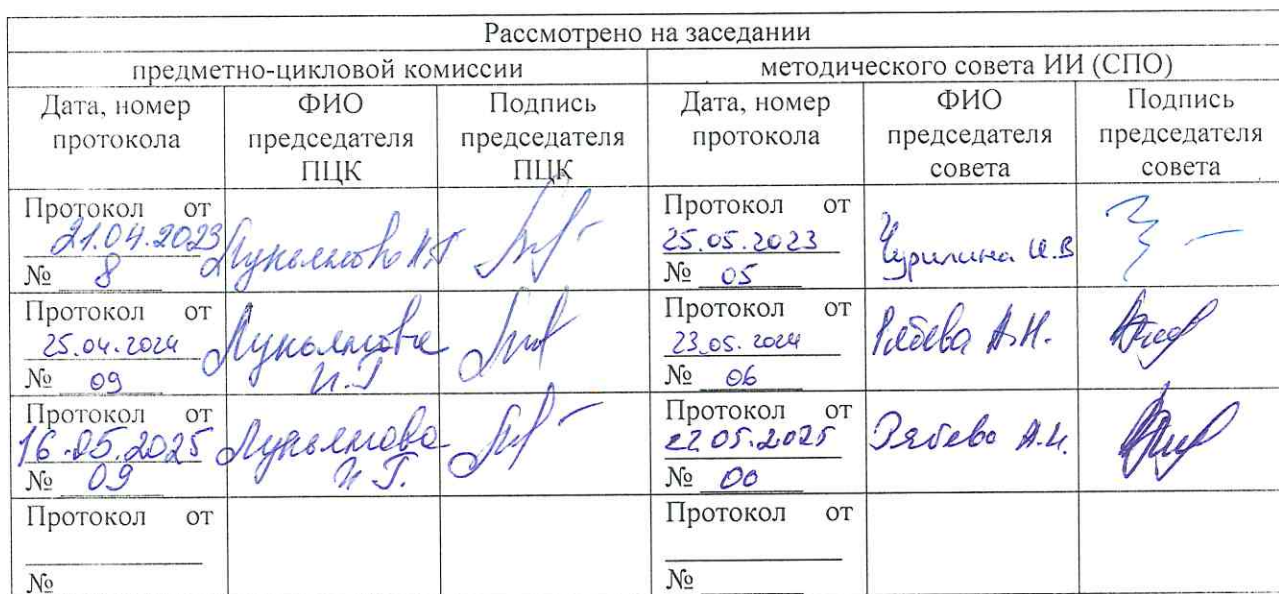 Рассмотрено на заседании
предметно-цикловой комиссии методического совета ИИ (СПО)
Дата, номер протокола ФИО председателя ПЦК Подпись председателя ПЦК Дата, номер протокола ФИО председателя совета Подпись председателя совета
Протокол от
21.04.2023
№ 8
Лукьянова И.Г.
Протокол от
25.05.2023
№ 05
Чурилина И.В
Протокол от
25.04.2024
№ 09
Лукьянова
И.Г.
Протокол от
23.05.2024
№ 06
А.Н.
Протокол от
16.05.2025
№ 09
Лукьянова
И.Г.
Протокол от
22 05.2025
№
Протокол от
№
Протокол от
№